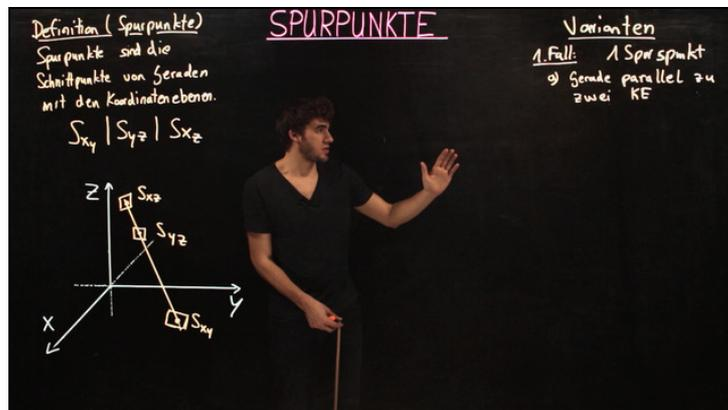 SPURPUNKTE
Definition (Spurpunkte)
Spurpunkte sind die
Schnittpunkte von Geraden
mit den Koordinatenebenen.
Sxy | Syz | Sxz
Z
Sxz
Syz
Y
X
Sxy
Varianten
1. Fall: 1 Spurspunkt
Gerade parallel zu
zwei KE